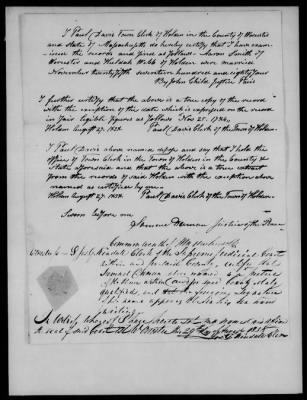 I Paul Davis Town Clerk of Holden in the County of Worcester
and State of Massachusetts do hereby certify that I have exam-
ined the records and find as follows. Aaron Smith of
Worcester and Huldah Webb of Holden were married
November twenty fifth seventeen hundred and eighty four
By John Child Justice Pais
I further certify that the above is a true copy of the record
with the exception of the date which is expressed on the record
in fair legible figures as follows Nov 25. 1784.
Holden August 27. 1838. Paul Davis Clerk of the Town of Holden.
I Paul Davis above named and say that I hold the
office of Town Clerk in the Town of Holden in the County &
State aforesaid and that the above is a true extract
from the records of said Holden with the exception above
named as certified by me
Holden August 27. 1838. Paul Davis Clerk of the Town of Holden.
Sworn before me
Samuel Damon Justice of the Peace
Commonwealth of Massachusetts
Worcester ss I Jos. G. Kendall Clerk of the Supreme Judicial Court
within and for said County certify that
Samuel Damon above named is a Justice
of the Peace within and for said County duly
qualified, and the foregoing Signature
of his name appears to be his own
writing
In testimony whereof I have hereunto set my name and affixed
the seal of said Court at Worcester this 29th day of August 1838
Jos. G. Kendall Clerk